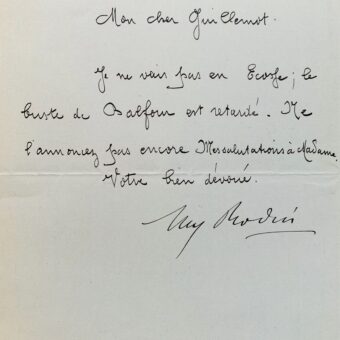 Mon cher Guillemot.
Je ne vais pas en Ecosse ; le
buste de Balfour est retardé. Ne
l'annoncez pas encore Mes salutations à Madame.
Votre bien dévoué.
Aug Rodin